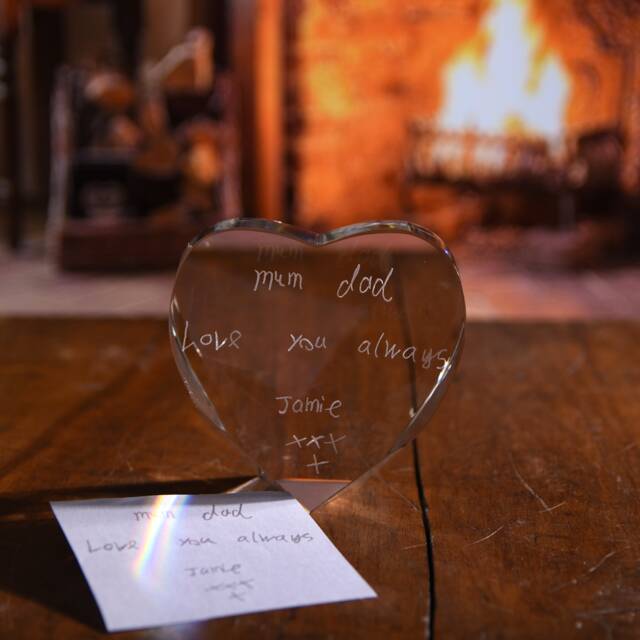 mum dad
Love you always
Jamie
xxx
x
mum dad
Love you always
Jamie
xxx
x